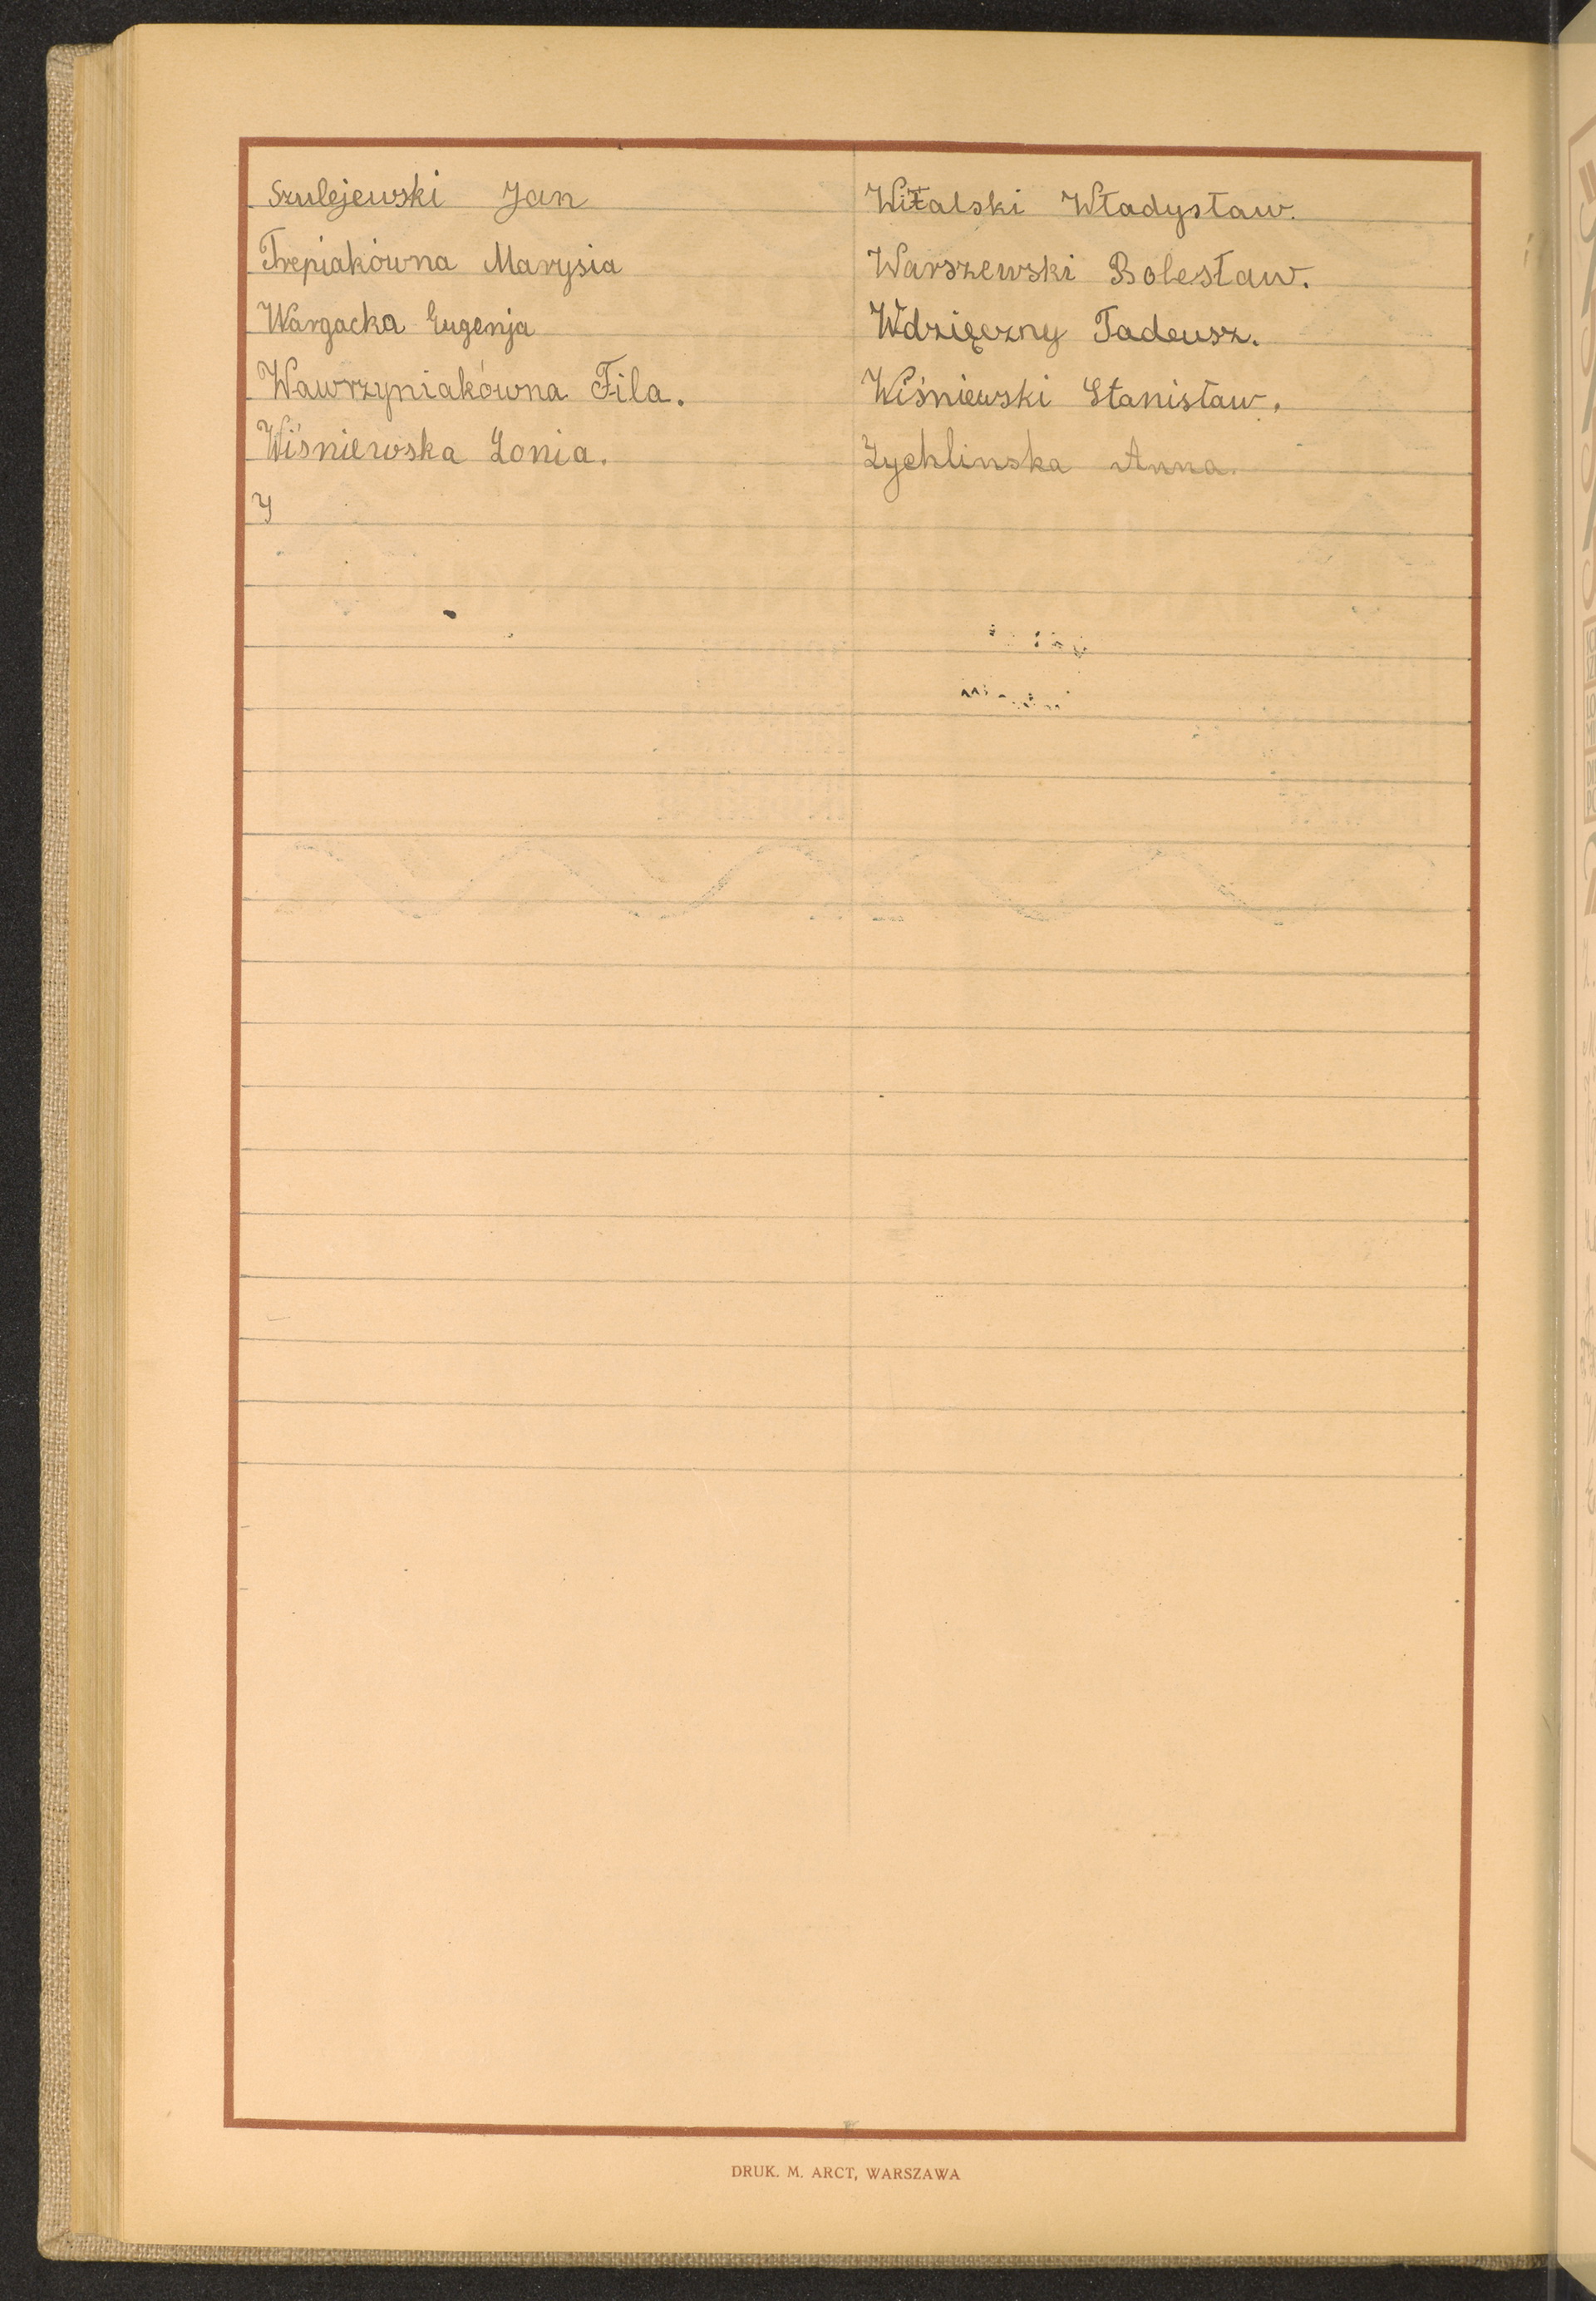 Szulejewski Jan
Trepiakówna Marysia
Wargacka Eugenja
Wawrzyniakówna Fila.
Wiśniewska Zonia.
Witalski Władysław.
Warszewski Bolesław.
Wdzięczny Tadeusz.
Wiśniewski Stanisław.
Zychlinska Anna.
DRUK. M. ARCT, WARSZAWA